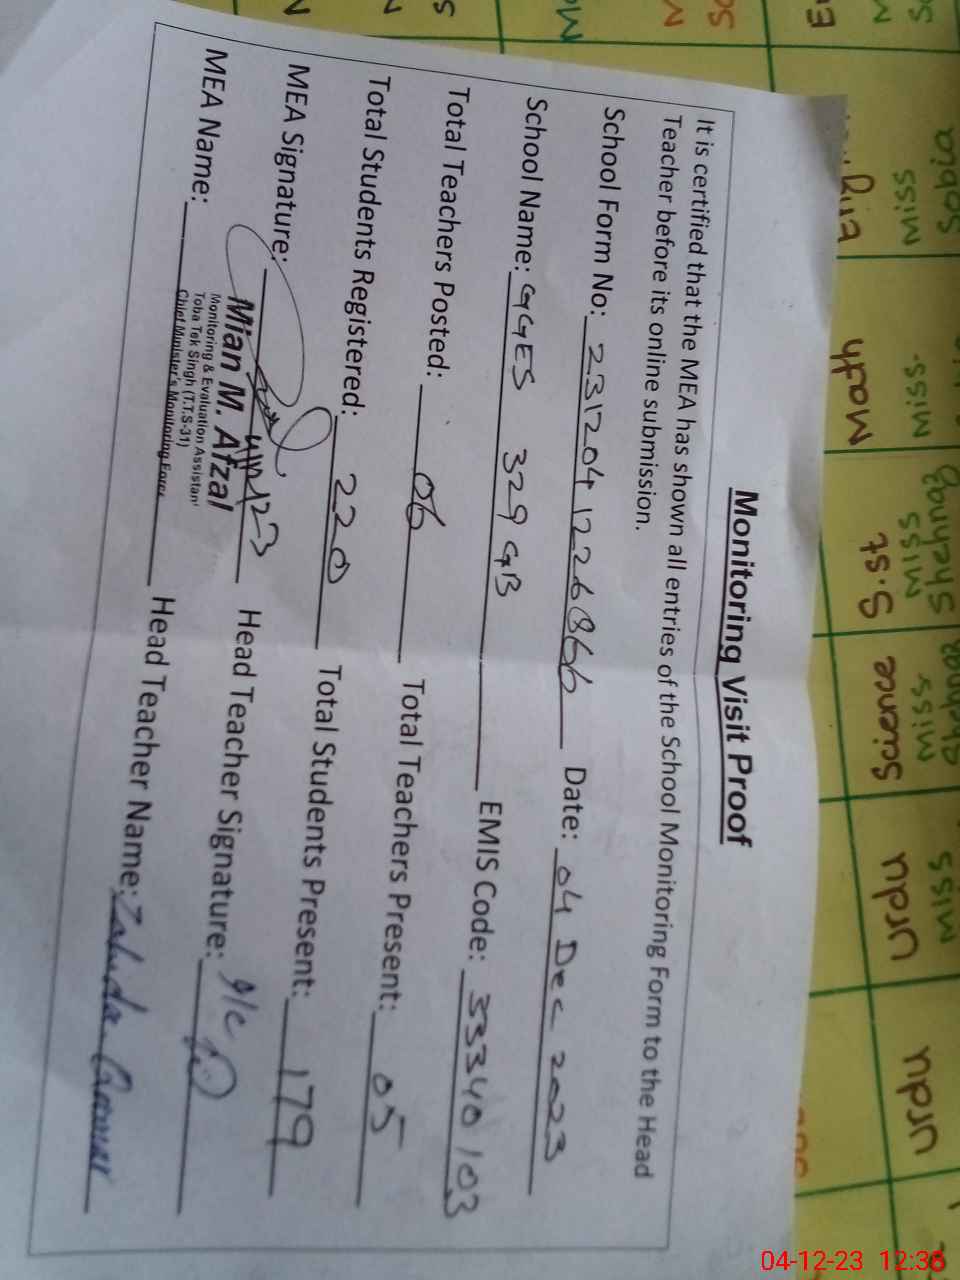 Monitoring Visit Proof
It is certified that the MEA has shown all entries of the School Monitoring Form to the Head
Teacher before its online submission.
School Form No: 231204 1226866 Date: 04 Dec 2023
School Name: GGES 329 GB EMIS Code: 33340103
Total Teachers Posted: 06 Total Teachers Present: 05
Total Students Registered: 220 Total Students Present: 179
MEA Signature: Head Teacher Signature: I/c
MEA Name: Head Teacher Name: Zahida
Mian M. Afzal
Monitoring & Evaluation Assistan
Toba Tek Singh (T.T.S-31)
Chief Minister's Monitoring Force
Sobia
Miss Miss. Shehnaz
Miss Miss Miss
Math S.st Science Urdu Urdu
04-12-23 12:36